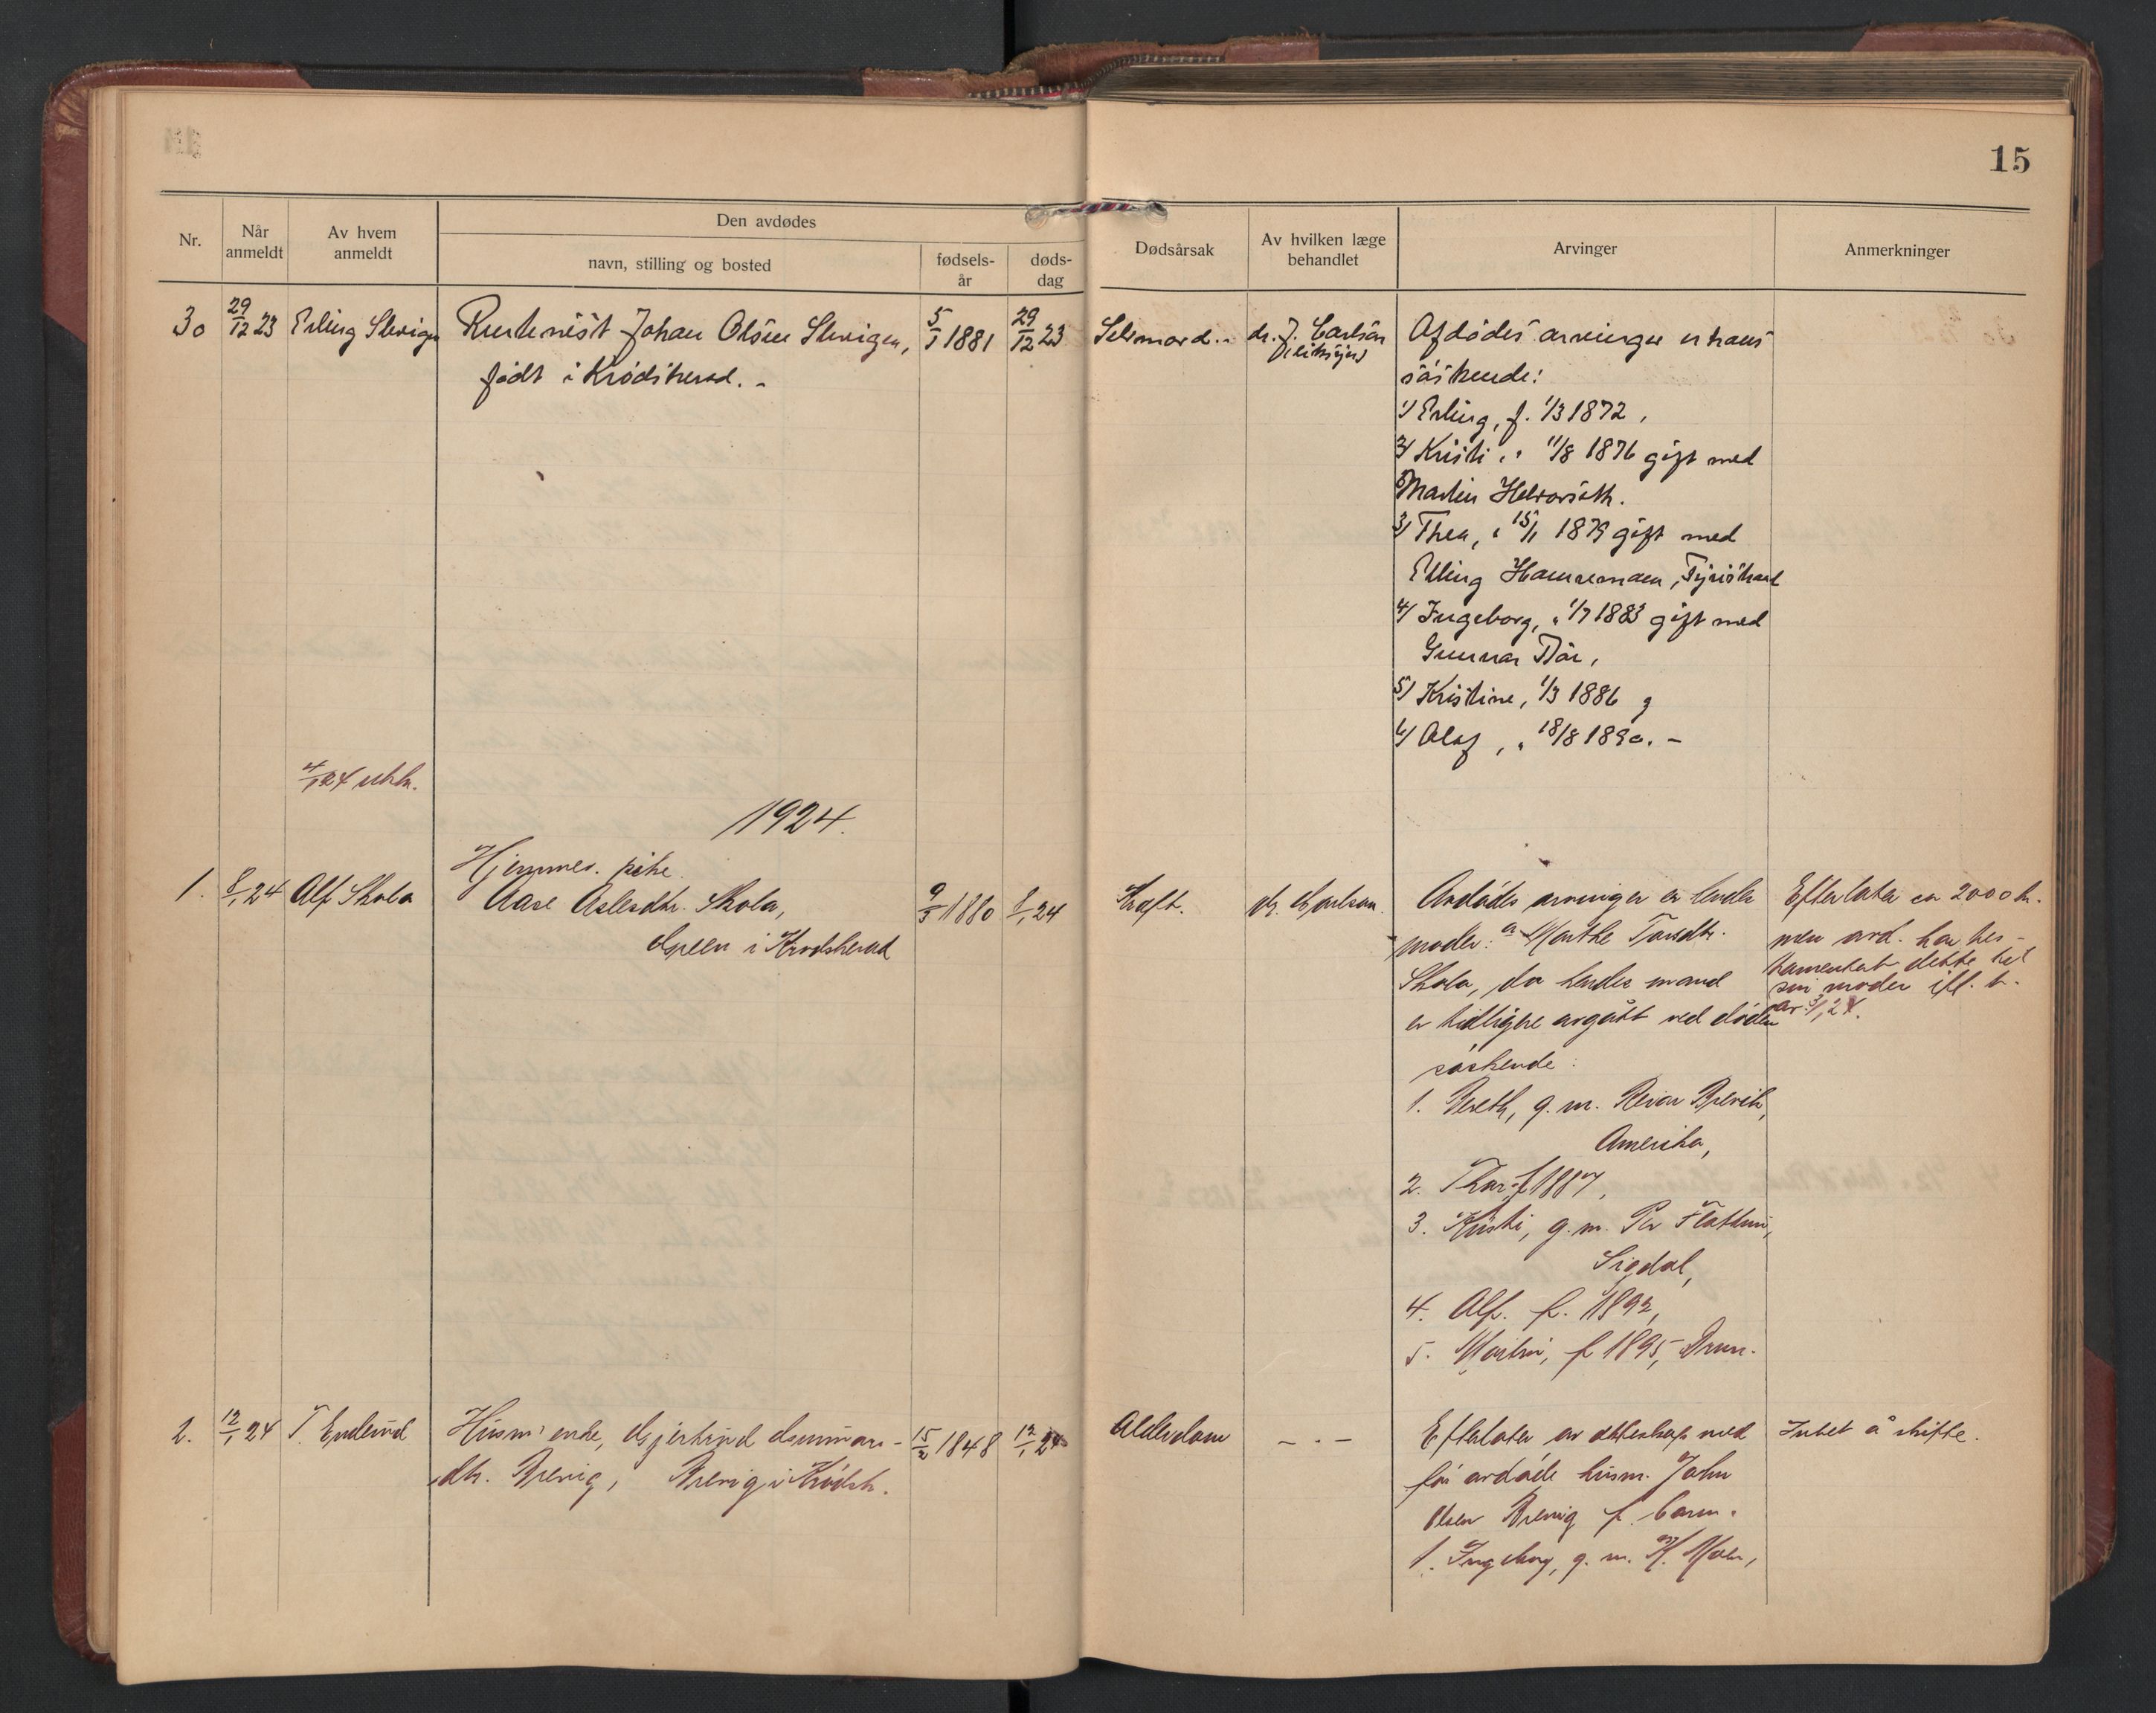 15
Nr.
Når anmeldt
Av hvem anmeldt
Den avdødes
navn, stilling og bosted
fødsels-år
døds-dag
Dødsårsak
Av hvilken læge behandlet
Arvinger
Anmerkninger
30 29/12 23 Erling Slevigen
Johan Olsen Slevigen,
født i Krødsherad. -
5/1 1881 29/12 23
Selvmord. -
dr. J. Carlson
Afdødes arvinger er hans
søskende:
1/ Erling, f. 1/3 1872,
2/ Kristi, " 11/8 1876 gift med
Martin
3/ Thea, " 15/1 1879 gift med
Elling
4/ Ingeborg, " 1/7 1883 gift med
Gunnar
5/ Kristine, 1/3 1886 g
6/ Olaf, " 18/8 1890. -
4/1 24
1924.
Hjemmev. pike
1. 8/1 24 Alf Skola
Aare Aslesdtr. Skola,
i Krødsherad
9/5 1880 8/1 24
Kræft.
dr. Carlson
Avdødes arvinger er hendes
moder: Marthe
Skola, da hendes mand
er tidligere avgått ved døden
søskende:
1. Bereth, g. m.
Amerika,
2. Thor f 1887,
3. Kristi, g. m. Per
Sigdal,
4. Alf. f. 1892,
5. f 1895, Dram.
Efterlater ca 2000 kr.
men avd. har tes-
tamentert dette til
sin moder ifl. t.
av 3/1 24.
2. 12/1 24 T. Enderud
Husm' enke, Gjertrud Gunnars-
dtr. Brevig, Brevig i Krødsh.
15/2 1848 12/1 24
Alderdom
- . -
Efterlater av ekteskap med
før avdøde husm. John
Olsen Brevig f. barn.
1. Ingeborg, g. m. K. Moen,
Intet å skifte.